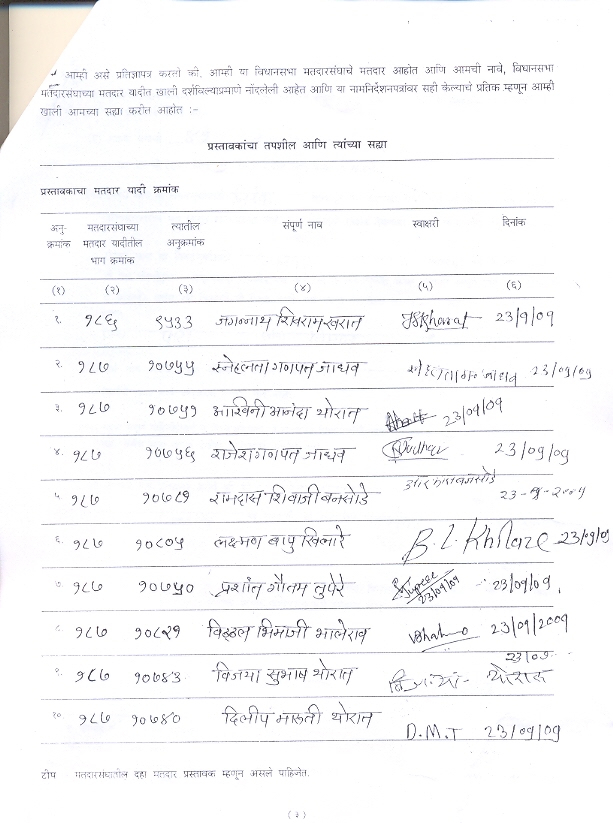 आम्ही असे प्रतिज्ञापत्र करतो की, आम्ही या विधानसभा मतदारसंघाचे मतदार आहोत आणि आमची नावे, विधानसभा
मतदारसंघाच्या मतदार यादीत खाली दर्शविल्याप्रमाणे नोंदलेली आहेत आणि या नामनिर्देशनपत्रांवर सही केल्याचे प्रतिक म्हणून आम्ही
खाली आमच्या सह्या करीत आहोत :-
प्रस्तावकांचा तपशील आणि त्यांच्या सह्या
प्रस्तावकाचा मतदार यादी क्रमांक
अनु- मतदारसंघाच्या त्यातील संपूर्ण नाव स्वाक्षरी दिनांक
क्रमांक मतदार यादीतील अनुक्रमांक
भाग क्रमांक
(१) (२) (३) (४) (५) (६)
१. १८६ ९५३३ जगन्नाथ शिवराम खरात JSKharat 23/9/09
२. १८७ १०७५५ स्नेहलता गणपत जाधव 23/09/09
३. १८७ १०७५१ आश्विनी आनंदा थोरात 23/09/09
४. १८७ १०७५६ राजेश गणपत जाधव 23/09/09
५. १८७ १०७८१ रामदास शिवाजी बनसोडे
६. १८७ १०८०५ लक्ष्मण बापु खिलारे B. L. Khilare 23/09/09
७. १८७ १०७५० प्रशांत गौतम तुपेरे 23/09/09 23/09/09
८. १८७ १०८२१ विठ्ठल भिमाजी भालेराव 23/09/2009
९. १८७ १०७४३ विजया सुभाष थोरात थोरात 23/09
१०. १८७ १०७४० दिलीप मारुती थोरात D.M.T 23/09/09
टीप मतदारसंघातील दहा मतदार प्रस्तावक म्हणून असले पाहिजेत.
(३)